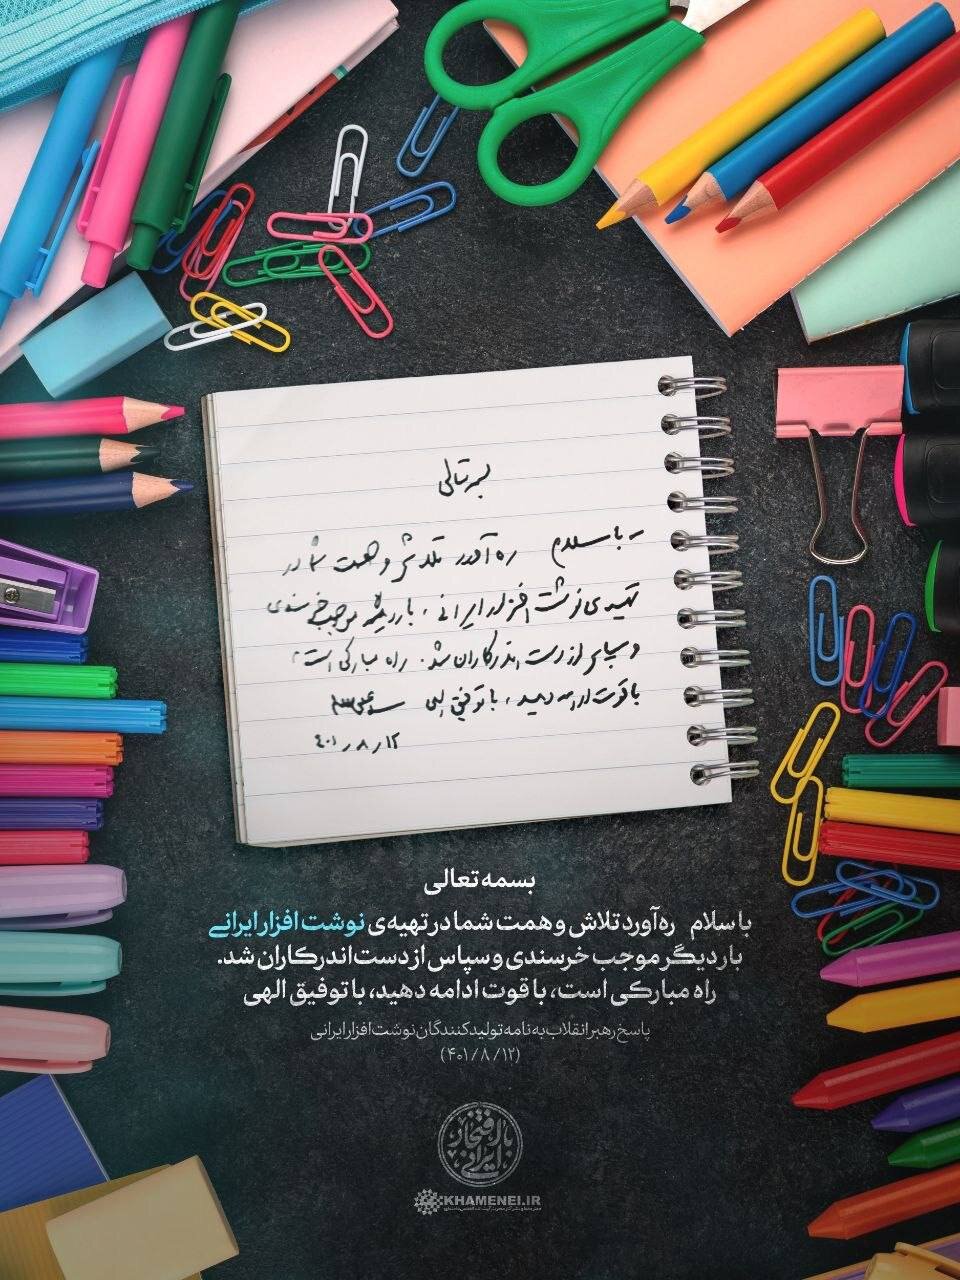 بسمه تعالی
- با سلام ره آورد تلاش و همت شما در
تهیه ی نوشت افزار ایرانی، بار دیگر موجب خرسندی
و سپاس از دست اندرکاران شد. راه مبارکی است،
با قوت ادامه دهید، با توفیق الهی
۴۰۱٫۸٫۱۲
بسمه تعالی
با سلام ره‌آورد تلاش و همت شما در تهیه‌ی نوشت افزار ایرانی
بار دیگر موجب خرسندی و سپاس از دست‌اندرکاران شد.
راه مبارکی است، با قوت ادامه دهید، با توفیق الهی
پاسخ رهبر انقلاب به نامه تولیدکنندگان نوشت‌افزار ایرانی
(۴۰۱/۸/۱۲)
با افتخار ایرانی
KHAMENEI.IR